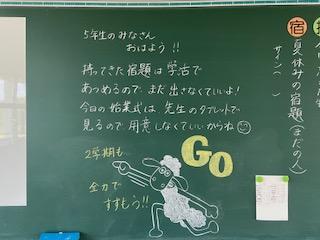 5年生のみなさん
おはよう!!
持ってきた宿題は学活で
あつめるので、まだ出さなくていいよ!
今日の始業式は、先生のタブレットで
見るので用意しなくていいからね☺
2学期も
全力で
すすもう!!
GO
宿
夏休みの宿題(まだの人)
サイン( )